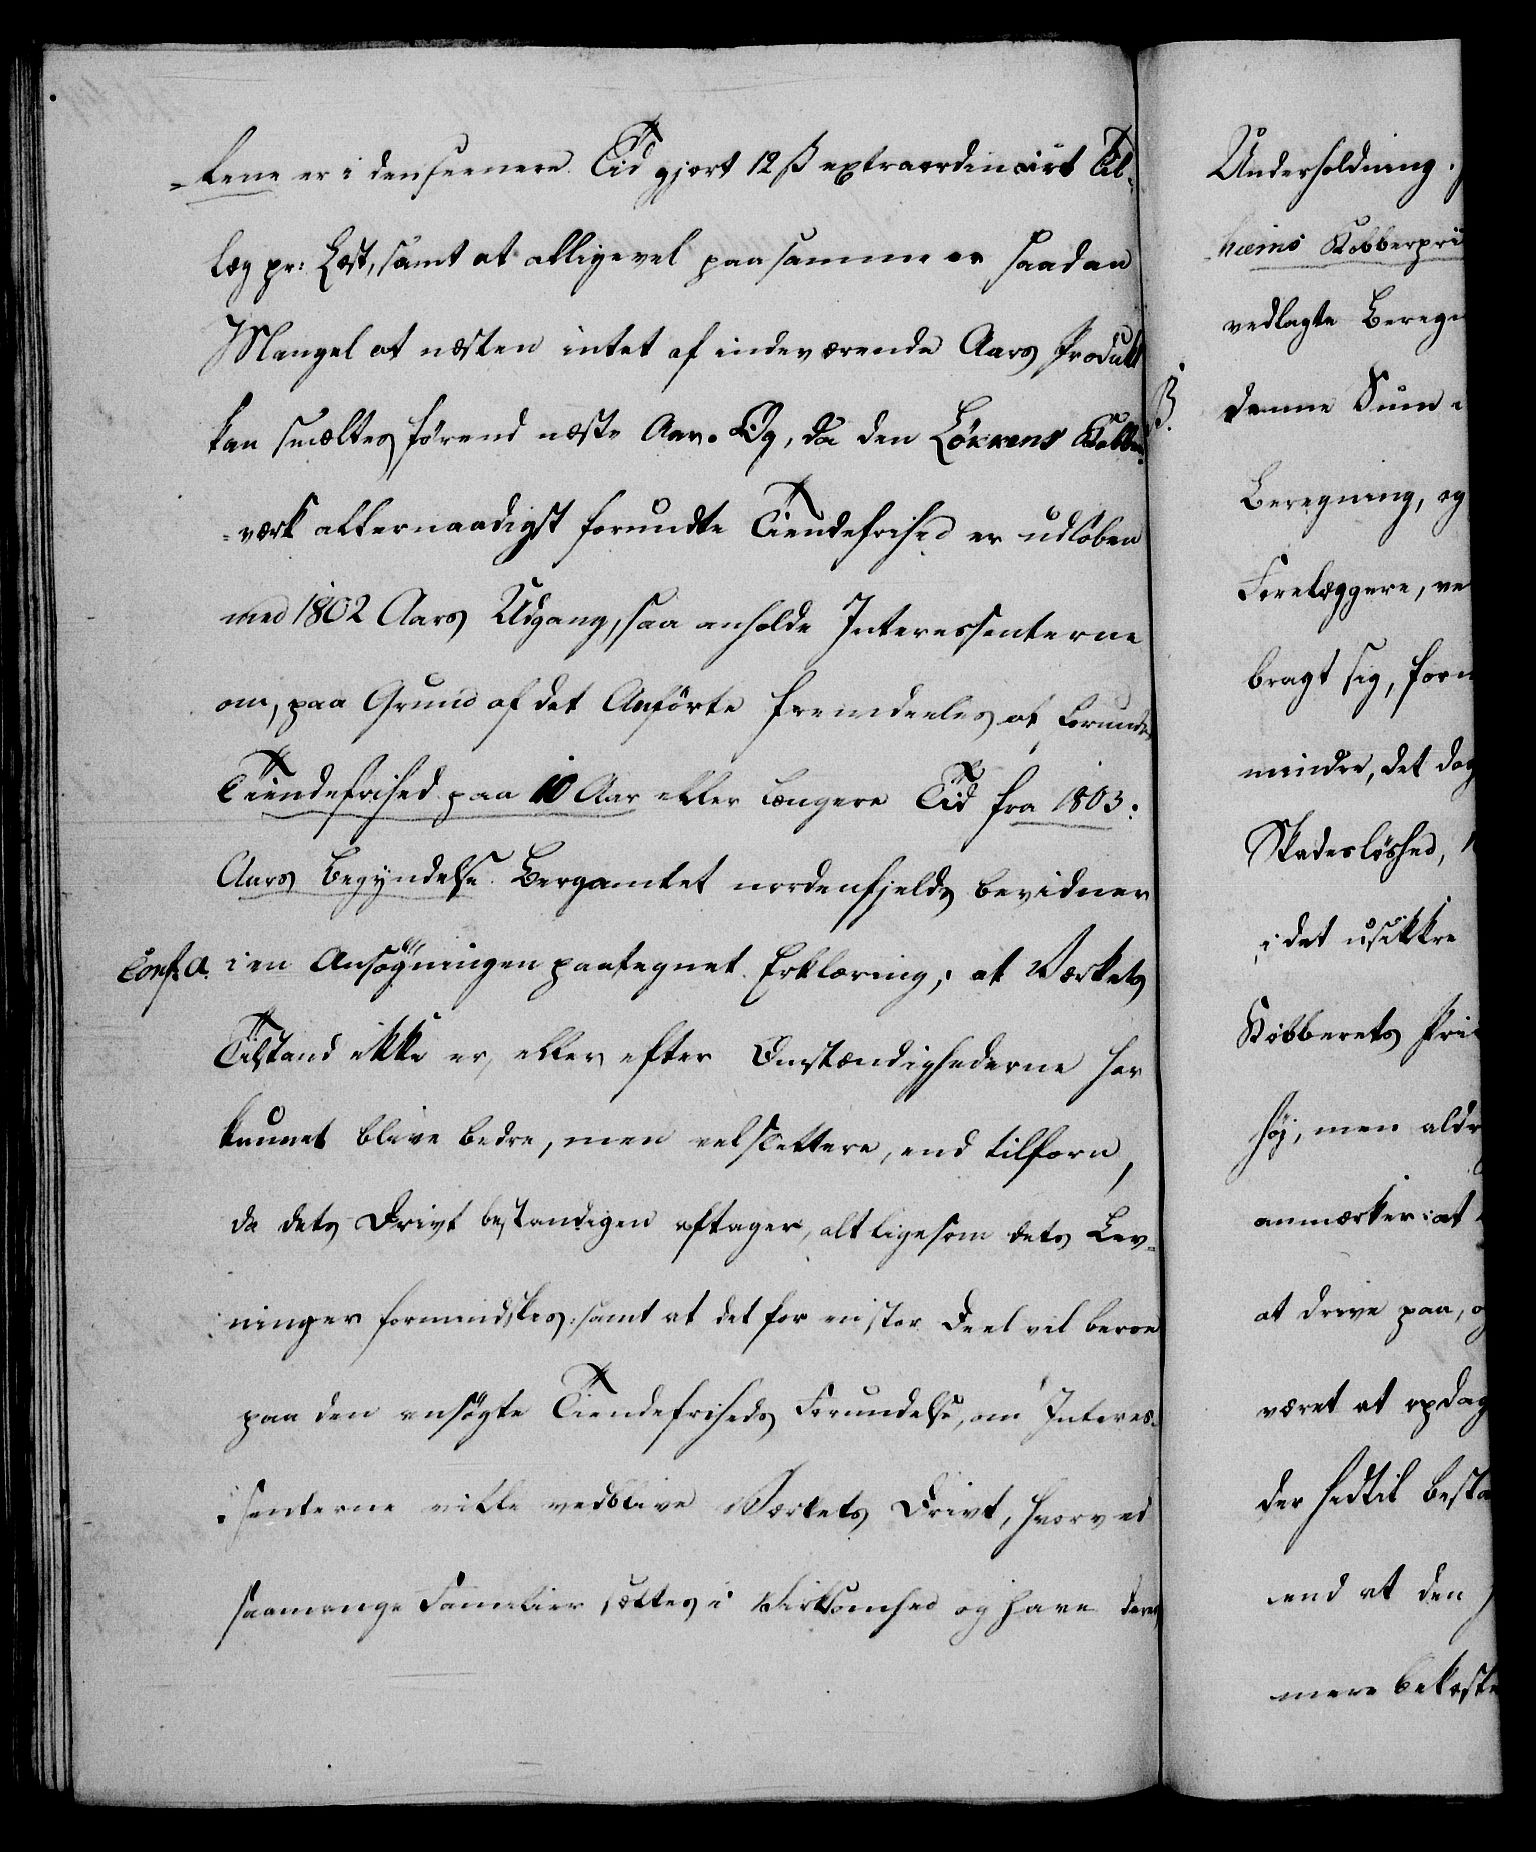 =lene er i den seenere Tid gjort 12 ß extraordinairt Til-
læg pr: Læst, samt at alligevel paa samme er saadan
Mangel at næsten intet af indeværende Aars Produkt
kan smæltes förend næste Aar. Og, da den Lökkens Kobber-
=værk allernaadigst forundte Tiendefrihed er udloben
med 1802 Aars Udgang, saa anholde Interessenterne
om, paa Grund af det Anförte fremdeeles at forundes
Tiendefrihed paa 10 Aar eller længere Tid fra 1803:
Aars Begyndelse. Bergamtet nordenfjelds bevidner
Conf. a. i en Ansögningen paategnet Erklæring, at Værkets
Tilstand ikke er, eller efter Omstændighederne har
kunnet blive bedre, men vel slettere, end tilforn,
da dets Drivt bestandigen aftager, alt ligesom dets Lev-
ninger formindskes: samt at det for en stor Deel vil beroe
paa den ansögte Tiendefriheds Forundelse, om Interes-
senterne ville vedblive Værkets Drivt, hvorved
saamange Familier sættes i Virksomhed og have deres
Underholdning.
-hiems Kobberpri
vedlagte Beregn
ß. denne Sum
Beregning, og
Forelæggere, ve
bragt sig, forn
mindre, det dog
Skadeslöshed,
i det usikkre
Kobberets Pri
höj, men aldr
anmærker: at
at drive paa, o
været at opdag
der hedtil besta
end at den
mere bekoste